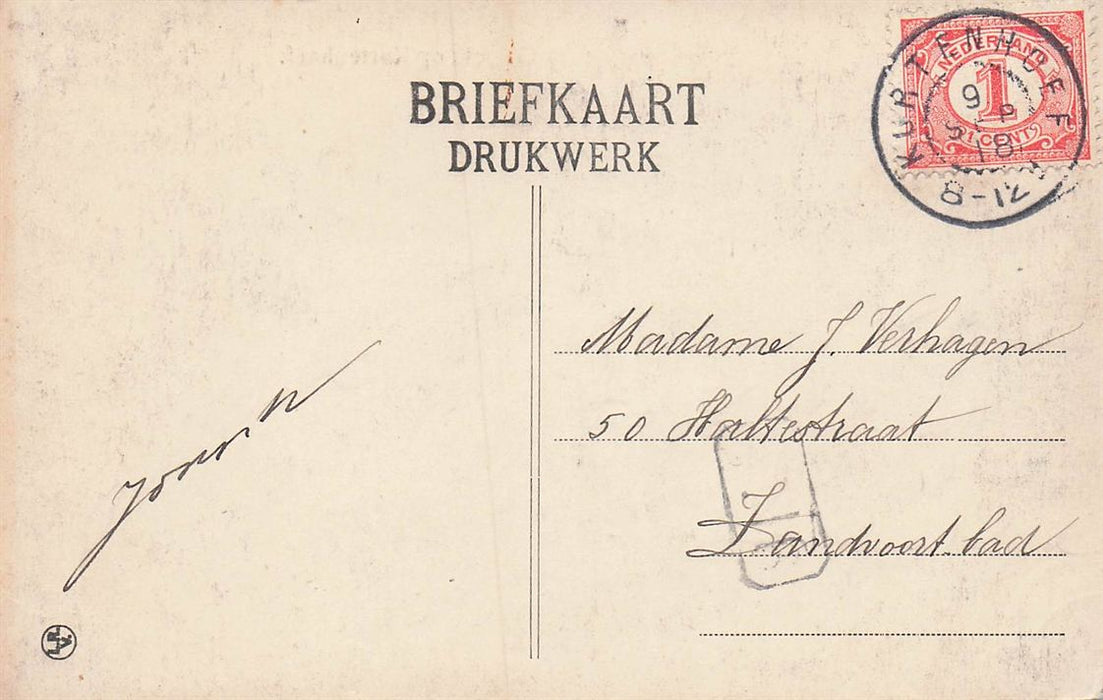 BRIEFKAART
DRUKWERK
NEDERLAND
1
1 CENT
KORTENHOEF
8-12
Madame J. Verhagen
50 Haltestraat
Zandvoort bad